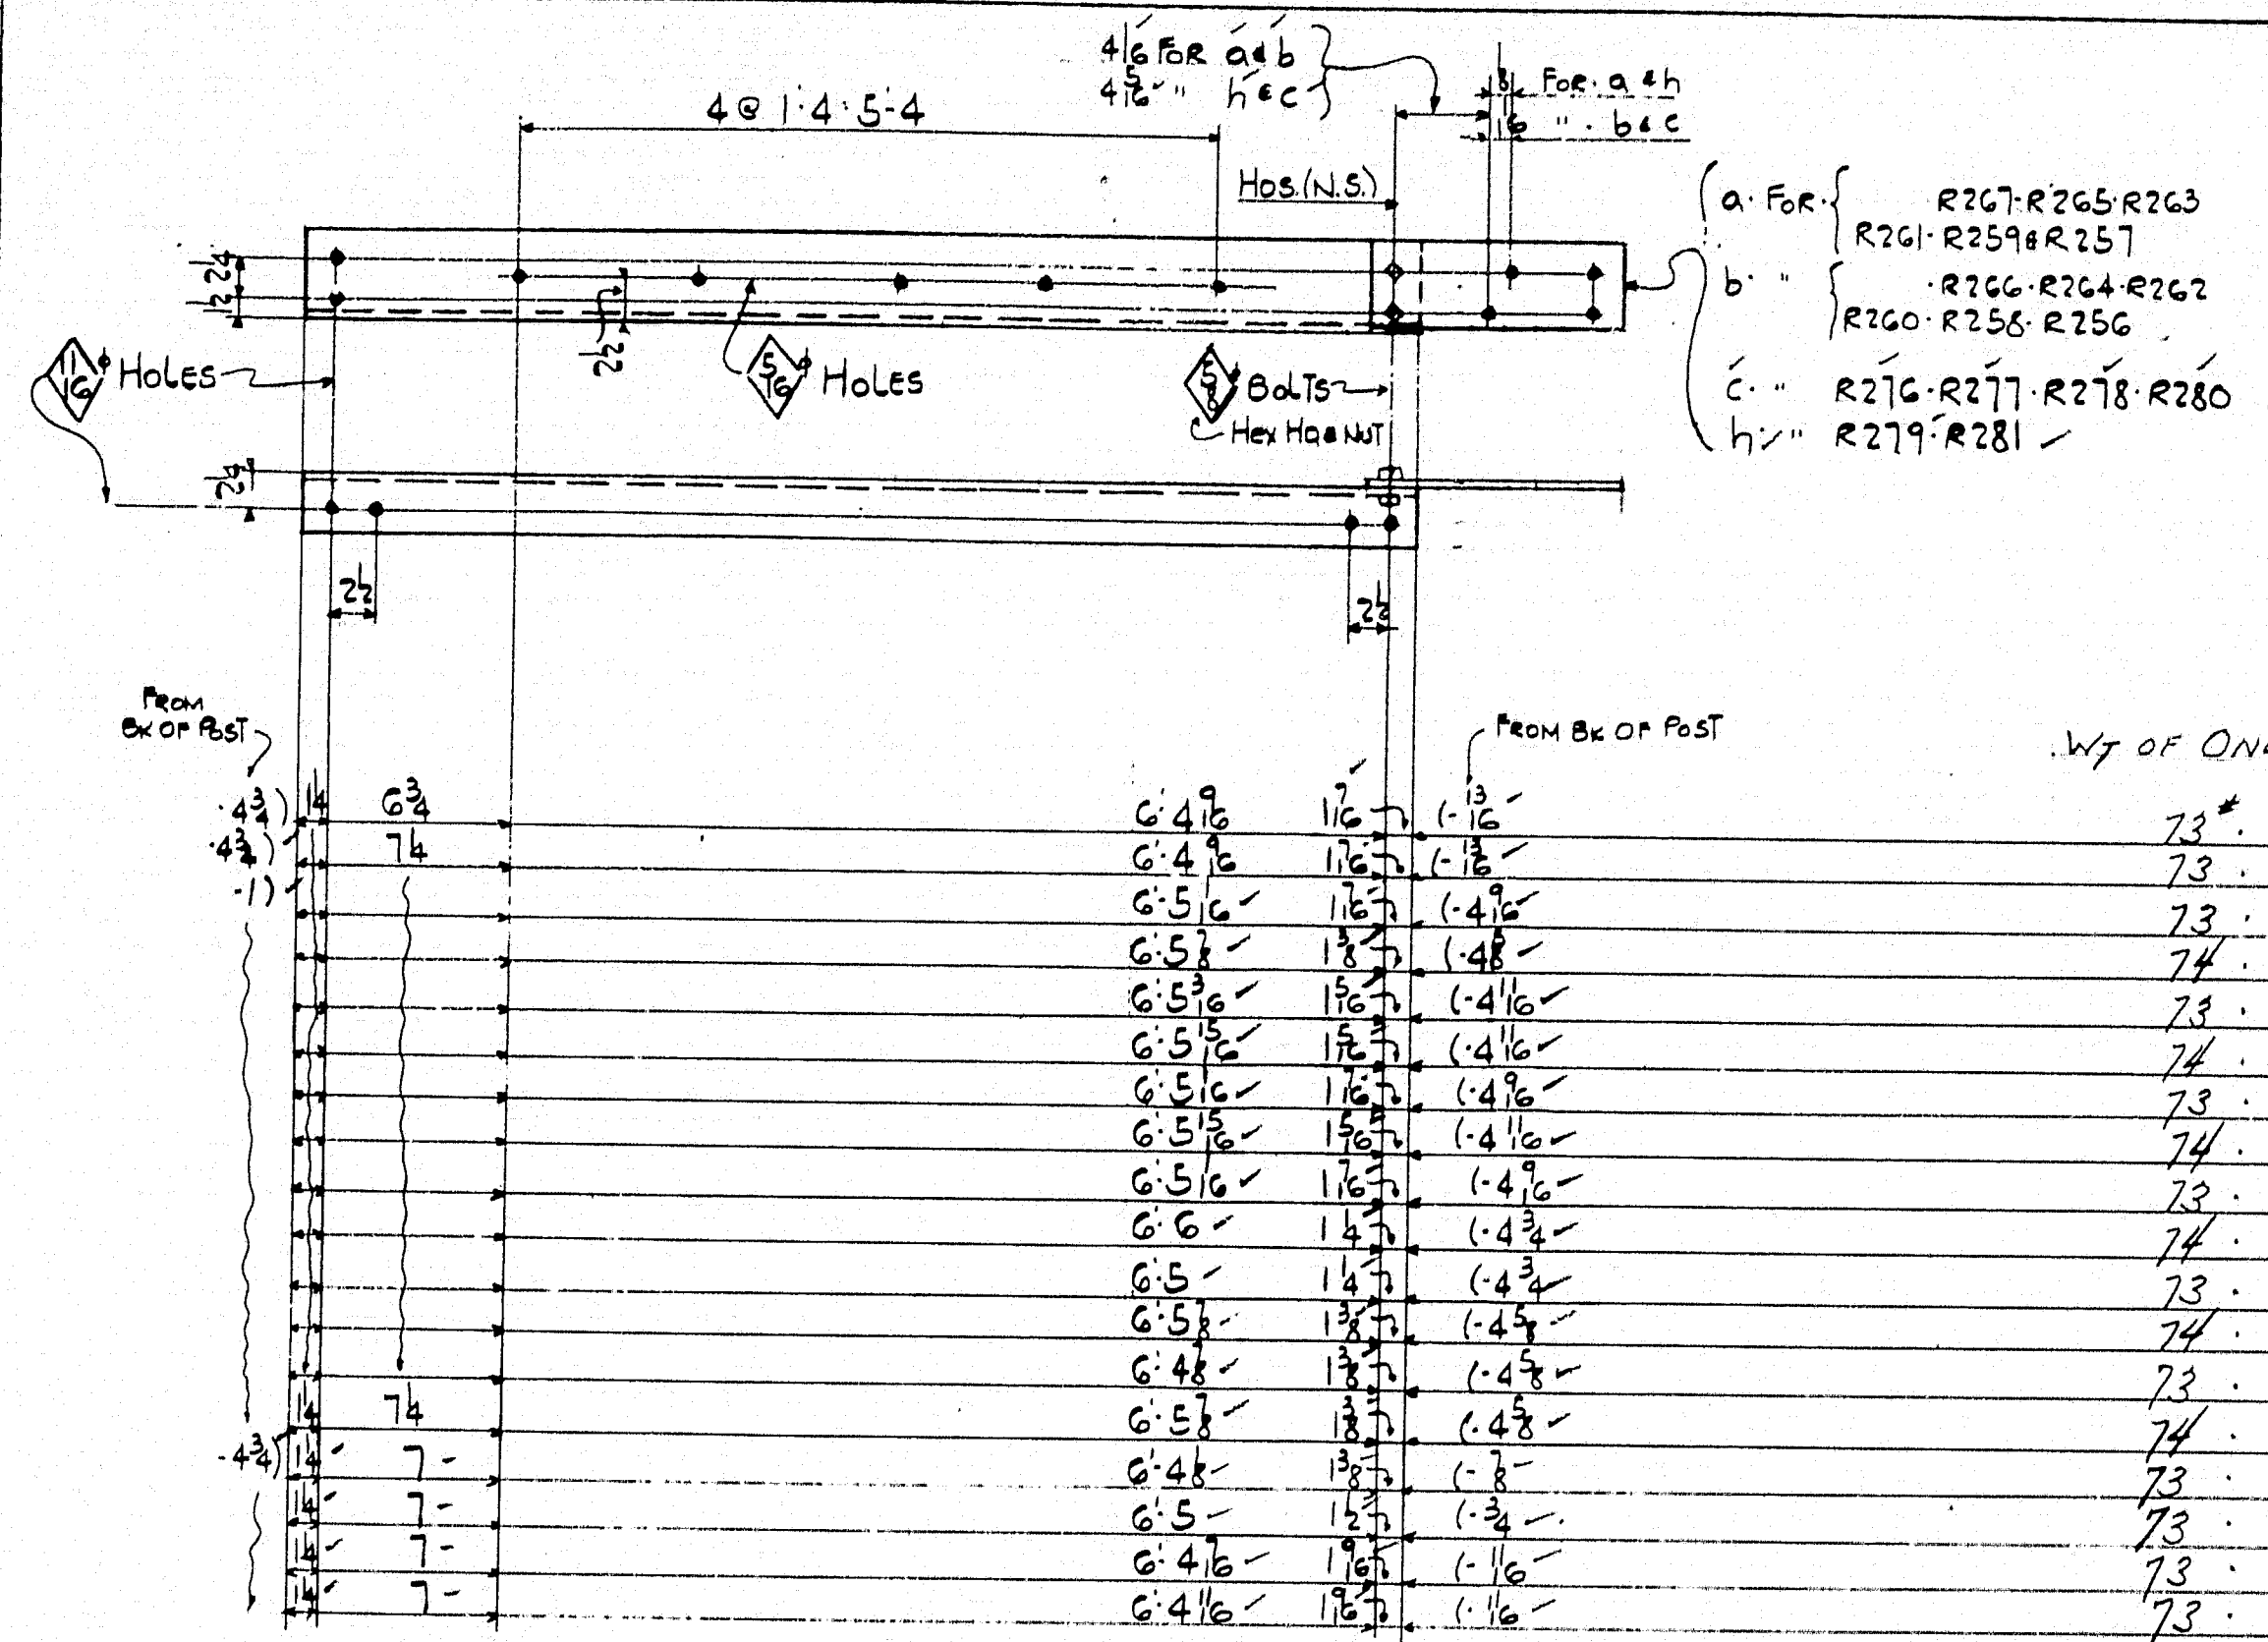 4 1/16 FOR a & b
4 5/16 " h & c
1/8 FOR a & h
1/16 " b & c
4 @ 1'-4 : 5'-4
HOS. (N.S.)
a. FOR R267·R265·R263
R261·R259 & R257
b. " R266·R264·R262
R260·R258·R256
c. " R276·R277·R278·R280
h. " R279·R281
2 1/4
1 1/2
2 1/2
11/16 φ HOLES
5/16 φ HOLES
5/8 φ BOLTS
HEX HD & NUT
2 1/4
2 1/2
2 1/2
FROM
BK OF POST
FROM BK OF POST
WT OF
-4 3/4) 1 1/4 6 3/4 6'-4 9/16 1 7/16 (-13/16 73#
-4 3/4) 7 1/4 6'-4 9/16 1 7/16 (-13/16 73
-1) 6'-5 1/16 1 7/16 (-4 9/16 73
6'-5 7/8 1 3/8 (-4 5/8 74
6'-5 3/16 1 5/16 (-4 11/16 73
6'-5 15/16 1 5/16 (-4 11/16 74
6'-5 1/16 1 7/16 (-4 9/16 73
6'-5 15/16 1 5/16 (-4 11/16 74
6'-5 1/16 1 7/16 (-4 9/16 73
6'-6 1 1/4 (-4 3/4 74
6'-5 1 1/4 (-4 3/4 73
6'-5 7/8 1 3/8 (-4 5/8 74
6'-4 7/8 1 3/8 (-4 5/8 73
1 1/4 7 1/4 6'-5 7/8 1 3/8 (-4 5/8 74
-4 3/4) 1 1/4 7 6'-4 1 3/8 (-7/8 73
1 1/4 7 6'-5 1 1/2 (-3/4 73
1 1/4 7 6'-4 1 9/16 (-11/16 73
1 1/4 7 6'-4 11/16 1 9/16 (-11/16 73